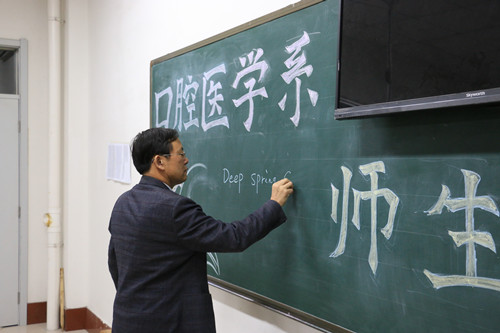 口腔医学系
Deep spring
师生
Skyworth